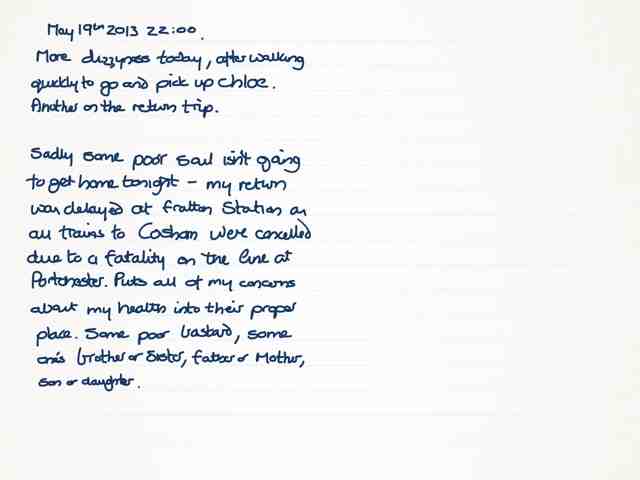 May 19th 2013 22:00.
More dizzyness today, after walking
quickly to go and pick up Chloe.
Another on the return trip.
Sadly some poor soul isn't going
to get home tonight - my return
was delayed at Fratton Station as
all trains to Cosham were cancelled
due to a fatality on the line at
Portchester. Puts all of my concerns
about my health into their proper
place. Some poor bastard, some
one's brother or sister, father or Mother,
son or daughter.